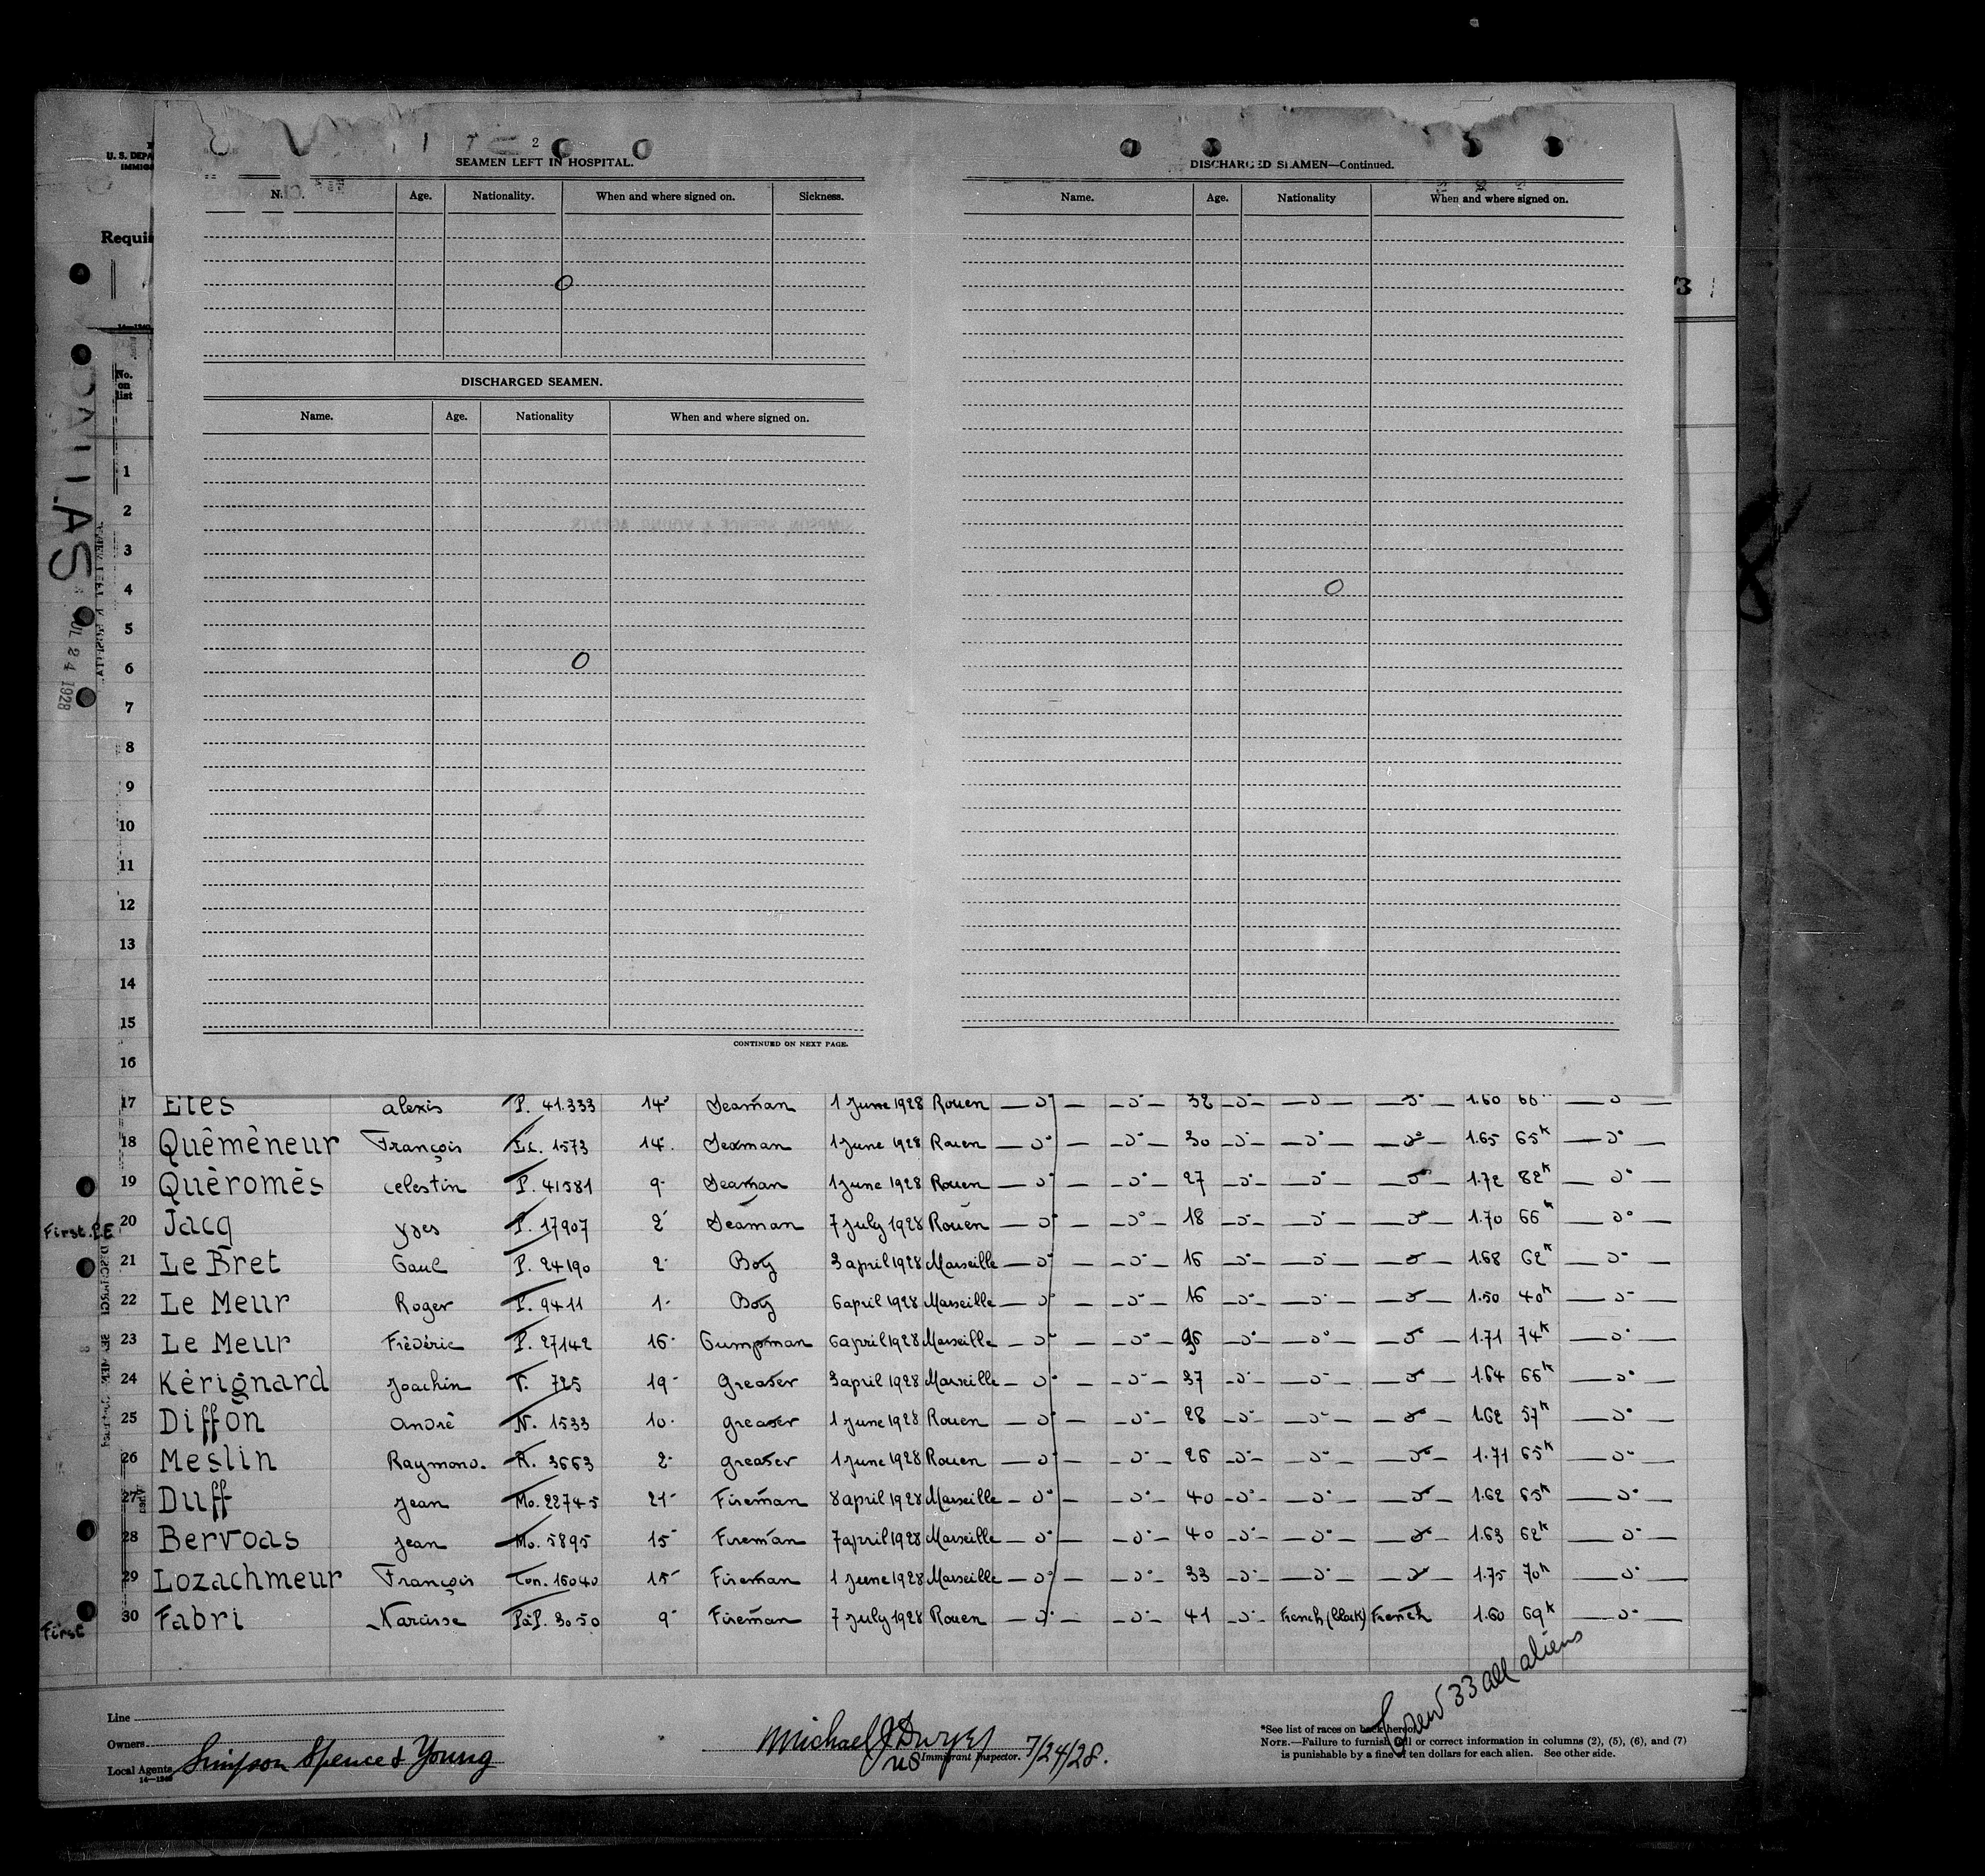 U. S. DEPA
IMMIG
Requi
2
SEAMEN LEFT IN HOSPITAL.
Age. Nationality. When and where signed on. Sickness.
0
DISCHARGED SEAMEN.
Name. Age. Nationality When and where signed on.
0
CONTINUED ON NEXT PAGE.
DISCHARGED SEAMEN—Continued.
Name. Age. Nationality When and where signed on.
0
3
DALLAS
JUL 24 1928
SIMPSON, SPENCE & YOUNG AGENTS
No.
on
list
1
2
3
4
5
6
7
8
9
10
11
12
13
14
15
16
17 Etes alexis P. 41.333 14 Seaman 1 June 1928 Rouen — do — — do — 32 — do — — do — — do — 1.60 66 — do —
18 Quéméneur François Lc. 1573 14 Seaman 1 June 1928 Rouen — do — — do — 30 — do — — do — — do — 1.65 65k — do —
19 Quéromés celestin P. 41581 9 Seaman 1 June 1928 Rouen — do — — do — 27 — do — — do — — do — 1.72 82k — do —
First P.E 20 Jacq yves P. 17907 2 Seaman 7 July 1928 Rouen — do — — do — 18 — do — — do — — do — 1.70 66k — do —
21 Le Bret Paul P. 24190 2 Boy 3 april 1928 Marseille — do — — do — 16 — do — — do — — do — 1.68 62k — do —
22 Le Meur Roger P. 9411 1 Boy 6 april 1928 Marseille — do — — do — 16 — do — — do — — do — 1.50 40k — do —
23 Le Meur Frédéric P. 27142 16 Pumpman 6 april 1928 Marseille — do — — do — — do — — do — — do — 1.71 74k — do —
24 Kérignard Joachin T. 725 19 greaser 3 april 1928 Marseille — do — — do — 37 — do — — do — — do — 1.64 66k — do —
25 Diffon andré N. 1533 10 greaser 1 June 1928 Rouen — do — — do — 28 — do — — do — — do — 1.62 57k — do —
26 Meslin Raymond. R. 3663 2 greaser 1 June 1928 Rouen — do — — do — 26 — do — — do — — do — 1.71 65k — do —
27 Duff Jean Mo. 22745 21 Fireman 8 april 1928 Marseille — do — — do — 40 — do — — do — — do — 1.62 65k — do —
28 Bervoas Jean Mo. 5895 15 Fireman 7 april 1928 Marseille — do — — do — 40 — do — — do — — do — 1.63 62k — do —
29 Lozachmeur François Con. 16040 15 Fireman 1 June 1928 Marseille — do — — do — 33 — do — — do — — do — 1.75 70k — do —
First 30 Fabri Narcisse PàP. 3050 9 Fireman 7 July 1928 Rouen — do — — do — 41 — do — French (black) French 1.60 69k — do —
Crew 33 all aliens
Line
Owners
Local Agents Simpson Spence & Young
14—1240
Michael J Dwyer
US Immigrant Inspector. 7/24/28.
*See list of races on back hereof.
NOTE.—Failure to furnish full or correct information in columns (2), (5), (6), and (7)
is punishable by a fine of ten dollars for each alien. See other side.